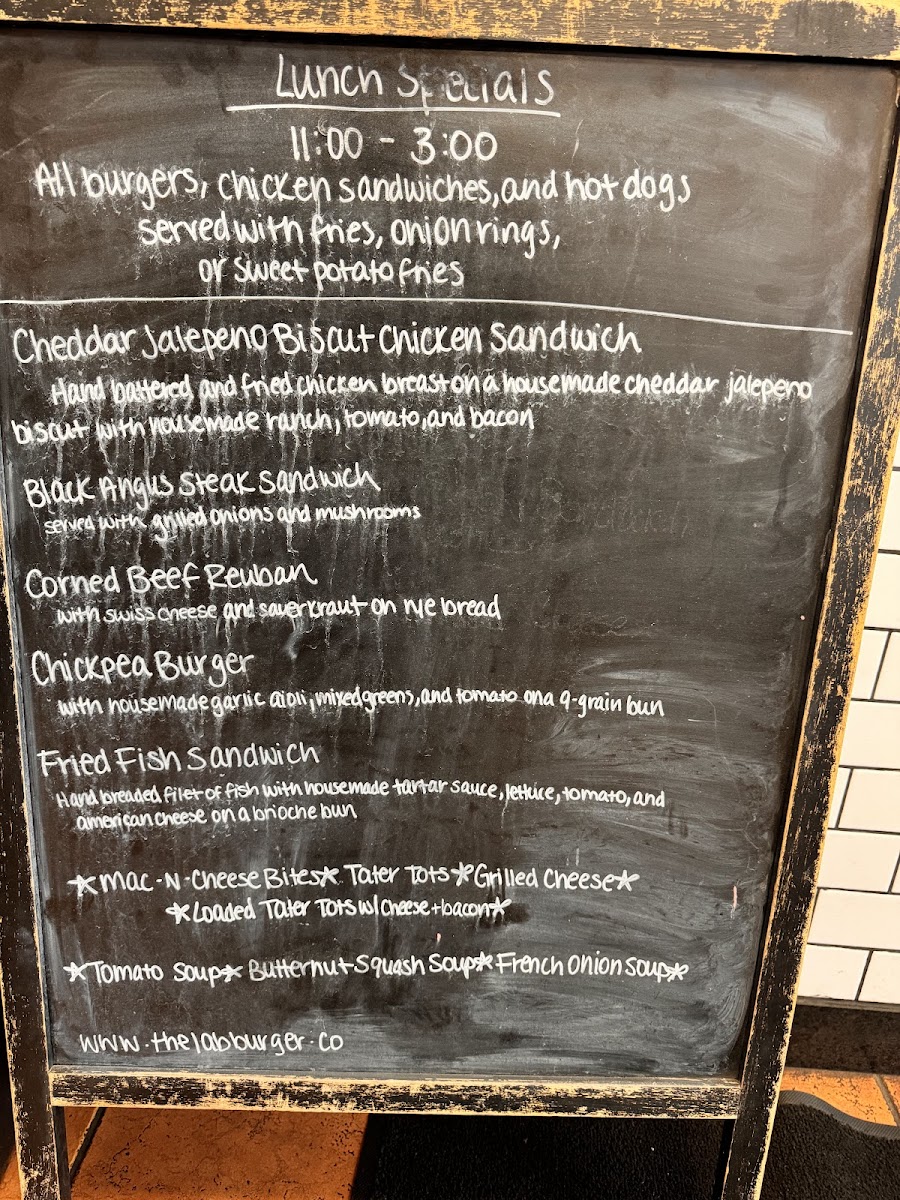 Lunch Specials
11:00 - 3:00
All burgers, chicken sandwiches, and hot dogs
served with fries, onion rings,
or sweet potato fries
Cheddar Jalepeno Biscut Chicken Sandwich
Hand battered and fried chicken breast on a housemade cheddar jalepeno
biscut with housemade ranch, tomato, and bacon
Black Angus Steak Sandwich
served with grilled onions and mushrooms
Corned Beef Reuban
with swiss cheese and sauerkraut on rye bread
Chickpea Burger
with housemade garlic aioli, mixed greens, and tomato on a 9-grain bun
Fried Fish Sandwich
Hand breaded filet of fish with housemade tartar sauce, lettuce, tomato, and
american cheese on a brioche bun
*Mac-N-Cheese Bites* Tater Tots *Grilled Cheese*
*Loaded Tater Tots w/ Cheese + bacon*
*Tomato Soup* Butternut Squash Soup* French Onion Soup*
www.thelabburger.co